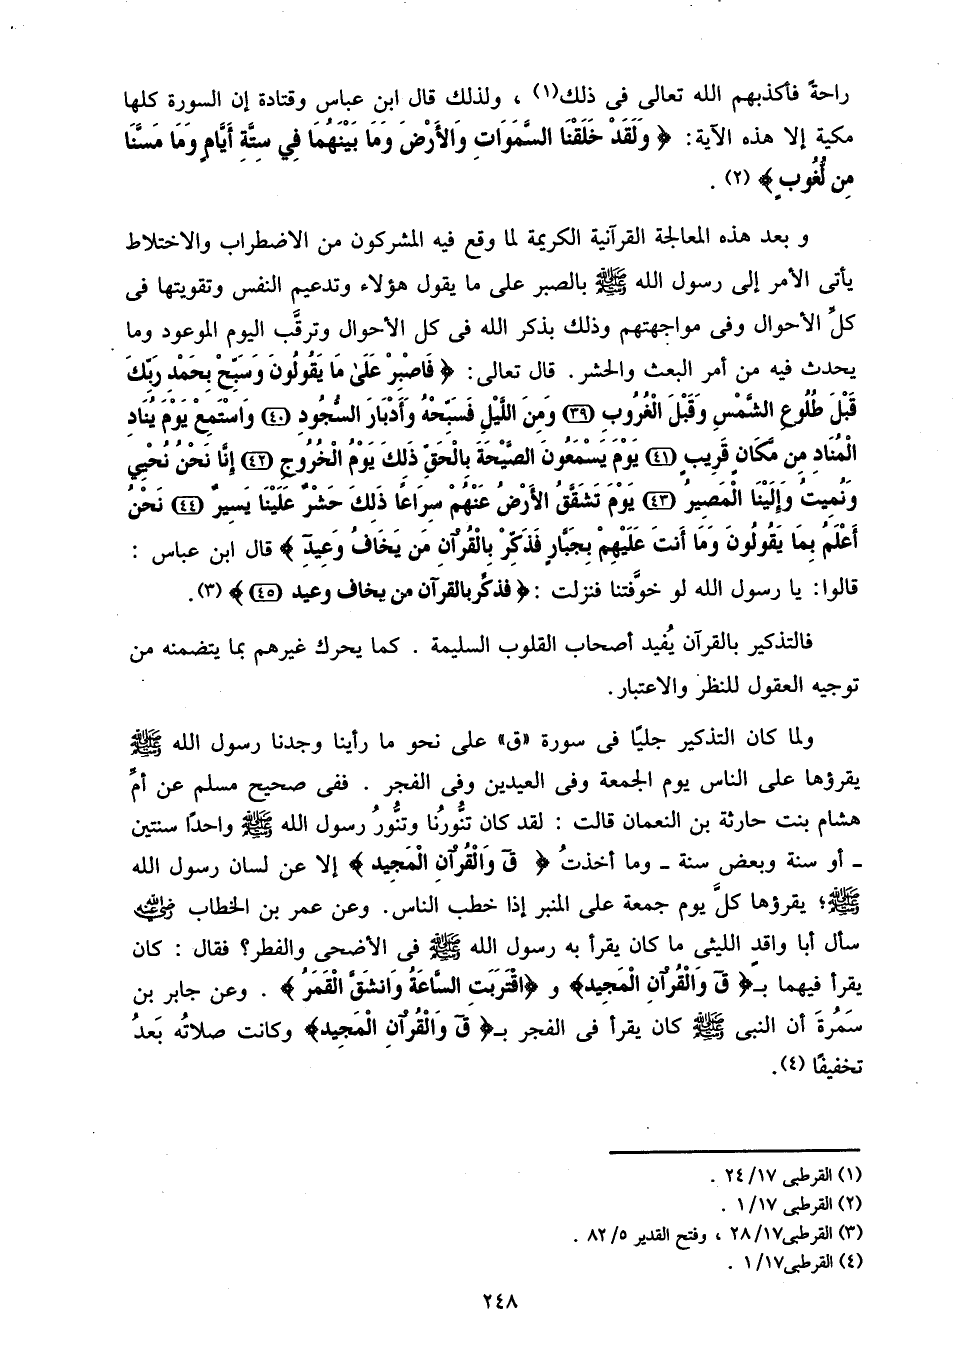 راحةً فأكذبهم الله تعالى فى ذلك(١) ، ولذلك قال ابن عباس وقتادة إن السورة كلها
مكية إلا هذه الآية: ﴿ وَلَقَدْ خَلَقْنَا السَّمَوَاتِ وَالأَرْضَ وَمَا بَيْنَهُمَا فِي سِتَّةِ أَيَّامٍ وَمَا مَسَّنَا
مِن لُّغُوبٍ ﴾ (٢) .
و بعد هذه المعالجة القرآنية الكريمة لما وقع فيه المشركون من الاضطراب والاختلاط
يأتى الأمر إلى رسول الله ﷺ بالصبر على ما يقول هؤلاء وتدعيم النفس وتقويتها فى
كلِّ الأحوال وفى مواجهتهم وذلك بذكر الله فى كل الأحوال وترقَّب اليوم الموعود وما
يحدث فيه من أمر البعث والحشر. قال تعالى: ﴿ فَاصْبِرْ عَلَىٰ مَا يَقُولُونَ وَسَبِّحْ بِحَمْدِ رَبِّكَ
قَبْلَ طُلُوعِ الشَّمْسِ وَقَبْلَ الْغُرُوبِ (٣٩) وَمِنَ اللَّيْلِ فَسَبِّحْهُ وَأَدْبَارَ السُّجُودِ (٤٠) وَاسْتَمِعْ يَوْمَ يُنَادِ
الْمُنَادِ مِن مَّكَانٍ قَرِيبٍ (٤١) يَوْمَ يَسْمَعُونَ الصَّيْحَةَ بِالْحَقِّ ذَلِكَ يَوْمُ الْخُرُوجِ (٤٢) إِنَّا نَحْنُ نُحْيِي
وَنُمِيتُ وَإِلَيْنَا الْمَصِيرُ (٤٣) يَوْمَ تَشَقَّقُ الأَرْضُ عَنْهُمْ سِرَاعًا ذَلِكَ حَشْرٌ عَلَيْنَا يَسِيرٌ (٤٤) نَحْنُ
أَعْلَمُ بِمَا يَقُولُونَ وَمَا أَنتَ عَلَيْهِم بِجَبَّارٍ فَذَكِّرْ بِالْقُرْآنِ مَن يَخَافُ وَعِيدِ ﴾ قال ابن عباس :
قالوا: يا رسول الله لو خوَّفتنا فنزلت :﴿ فذكِّر بالقرآن من يخاف وعيد (٤٥) ﴾ (٣).
فالتذكير بالقرآن يُفيد أصحاب القلوب السليمة . كما يحرك غيرهم بما يتضمنه من
توجيه العقول للنظر والاعتبار.
ولما كان التذكير جليًا فى سورة «ق» على نحو ما رأينا وجدنا رسول الله ﷺ
يقرؤها على الناس يوم الجمعة وفى العيدين وفى الفجر . ففى صحيح مسلم عن أمِّ
هشام بنت حارثة بن النعمان قالت : لقد كان تنُّورُنا وتنُّورُ رسول الله ﷺ واحدًا سنتين
ـ أو سنة وبعض سنة ـ وما أخذتُ ﴿ قَ وَالْقُرْآنِ الْمَجِيد ﴾ إلا عن لسان رسول الله
ﷺ؛ يقرؤها كلَّ يوم جمعة على المنبر إذا خطب الناس. وعن عمر بن الخطاب رضي الله عنه
سأل أبا واقدٍ الليثى ما كان يقرأ به رسول الله ﷺ فى الأضحى والفطر؟ فقال : كان
يقرأ فيهما بـ﴿ قَ وَالْقُرْآنِ الْمَجِيد﴾ و ﴿اقْتَرَبَتِ السَّاعَةُ وَانشَقَّ الْقَمَرُ ﴾ . وعن جابر بن
سَمُرةَ أن النبى ﷺ كان يقرأ فى الفجر بـ﴿ قَ وَالْقُرْآنِ الْمَجِيد﴾ وكانت صلاتُه بَعدُ
تخفيفًا (٤).
(١) القرطبى ٢٤/١٧ .
(٢) القرطبى ١/١٧ .
(٣) القرطبى٢٨/١٧ ، وفتح القدير ٨٢/٥ .
(٤) القرطبى١/١٧ .
٢٤٨